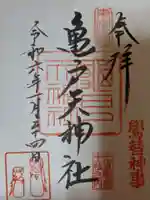 奉拝
亀戸天神社
令和六年一月二十四日
鷽替神事